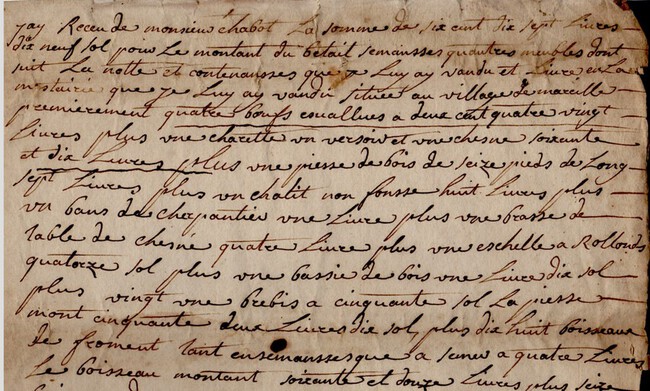 jay Receu de monsieur chabot La somme de six cent dix sept Livres
dix neuf sol pour Le montant du betail semansses quautres meubles dont
suit La notte et contenansses que je Luy ay vandu et Livré en La
mestairie que je Luy ay vandu située au village de mareille
premierement quatre bœufs esuallués a deux cent quatre vingt
Livres plus vne charette vn versoir et vne chesne soixante
et dix Livres plus vne piesse de bois de seize pieds de Long
sept Livres plus vn chalit non fonsse huit Livres plus
vn banc de cherpantier vne Livre plus vne brasse de
table de chesne quatre Livre plus vne eschelle a Rollonds
quatorze sol plus vne bassie de bois vne Livre dix sol
plus vingt vne brebis a cinquante sol La piesse
mont cinquante deux Livres dix sol, plus dix huit boisseaux
de froment tant ensemansse que a semer a quatre Livres
Le boisseau montant soixante et douze Livres plus seize